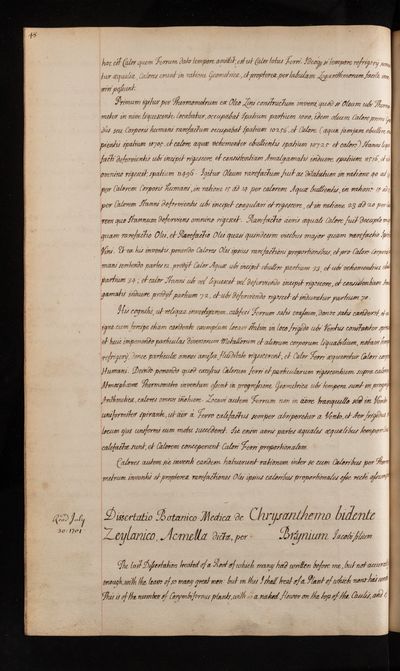 48
hoc est Calor quem Ferrum dato tempore amittit, est ut Calor totus Ferri. Ideoqʒ si tempora refrigerij
tur æqualia, Calores erunt in ratione Geometrica, et propterea per tabulam Logarithmorum facile
niri possunt.
Primum igitur per Thermometrum ex Oleo Lini constructum inveni, quod si Oleum ubi
meter in nive liquescenti locabatur, occupabat spatium partium 10000, idem oleum Calore primi
dus seu Corporis humani rarefactum occupabat spatium 10256, et Calore Aquæ jamjam ebullire
pientis spatium 10705, et calore aquæ vehementer ebullientis spatium 10725 et calore Stanni
facti defervientis ubi incipit rigescere et consistentiam Amalgamatis induere, spatium 11516, et ubi
omnino rigescit, spatium 11496. Igitur Oleum rarefactum fuit ac dilatatum in ratione 40 ad
per Calorem Corporis Humani, in ratione 15 ad 14 per calorem Aquæ bullientis, in ratione 15 ad
per Calorem Stanni defervientis ubi incipit coagulari et rigescere, et in ratione 23 ad 20 per
rem quo Stannum deferviens omnino rigescit. Rarefactio aeris æquali Calore fuit decuplo
quam rarefactio Olei, et Rarefactio Olei quasi quindecim vicibus major quam rarefactio Spiritus
Vini. Et ex his inventis ponendo Calores Olei ipsius rarefactioni proportionales, et pro Calore Corporis
mani scribendo partes 12, prodijt Calor Aquæ ubi incipit ebullire partium 33, et ubi vehementius
partium 34; et calor Stanni ubi vel liquescit vel deferviendo incipit rigescere, et consistentiam
gamatis induere prodijt partium 72, et ubi deferviendo rigescit et induratur partium 70.
His cognitis, ut reliqua investigarem, calefeci Ferrum satis crassum, donec satis canderet, et
igne cum forcipe etiam candente exemptum locavi statim in loco frigido ubi Ventus constanter
et huic imponendo particulas diversorum Metallorum et aliorum corporum liquabilium, notavi
refrigerij, donec particulæ omnes amissa fluiditate rigescerent, et Calor Ferri æquaretur Calori
Humani. Deinde ponendo quod excessus Calorum ferri et particularum rigescentium supra calorem
Atmosphæræ Thermometro inventum essent in progressione Geometrica ubi tempora sunt in
Arithmetica, calores omnes innotuere. Locavi autem Ferrum non in aere tranquillo sed in Vento
uniformiter spirante, ut aer a Ferro calefactus semper abriperetur a Vento, et aer frigidus in
locum ejus uniformi cum motu succederet. Sic enim aeris partes æquales æqualibus temporibus
calefactæ sunt, et Calorem conceperunt Calori Ferri proportionalem.
Calores autem sic inventi eandem habuerunt rationem inter se cum Caloribus per
metrum inventis et propterea rarefactiones Olei ipsius caloribus proportionales esse recte
Read July
30. 1701
Dissertatio Botanico Medica de Chrysanthemo bidente
Zeylanico, Acmella dicta, per Breynium Jacobi filium
The last Dissertation treated of a Root of which many had written before me, but not
enough, with the leave of so many great men: but in this I shall treat of a Plant of which none has
This is of the number of Corymbiferous plants, with a naked flower on the top of the Caulis, and